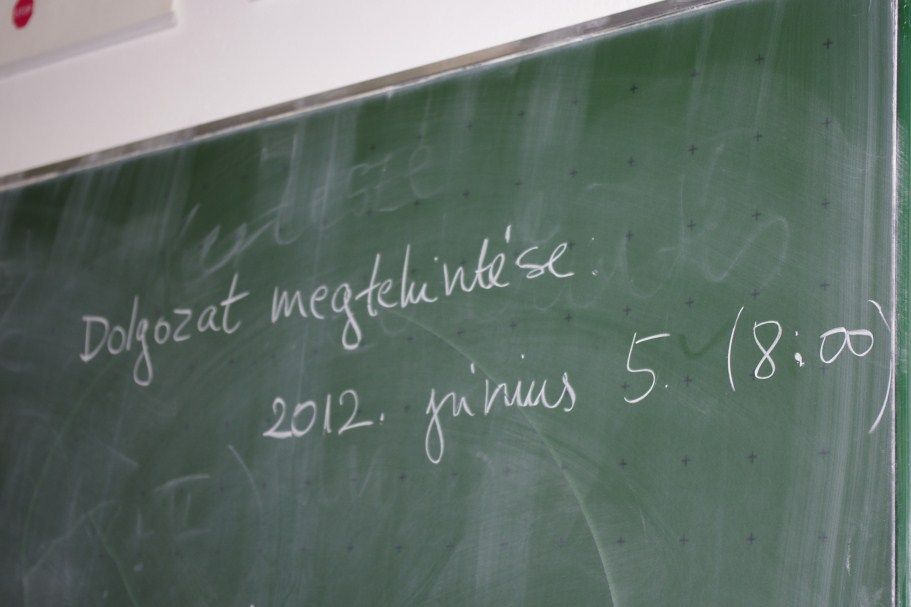 Dolgozat megtekintése:
2012. június 5. (8:00)